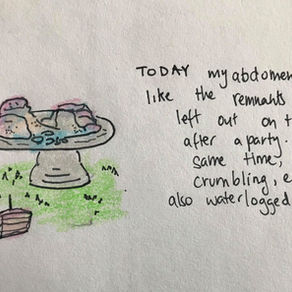 TODAY my abdomen
like the remnants
left out on t
after a party.
same time,
crumbling, e
also waterlogged